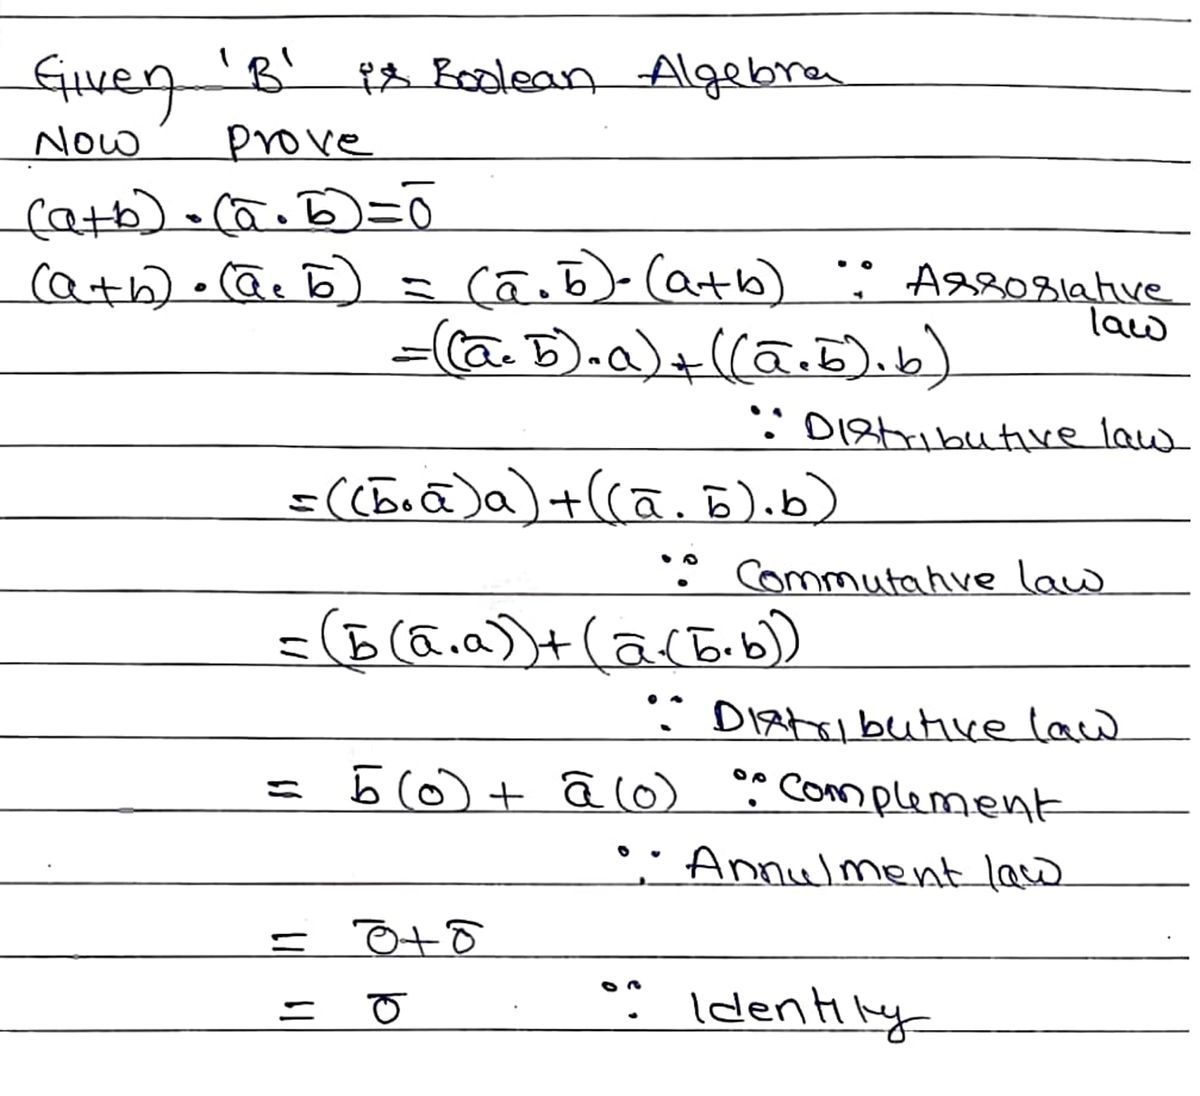 Given 'B' is Boolean Algebra
Now prove
(a+b)·(ā·b̄)=0̄
(a+b)·(ā·b̄) = (ā·b̄)·(a+b) ∵ Associative
law
=((ā·b̄)·a)+((ā·b̄)·b)
∵ Distributive law
=((b̄·ā)a)+((ā·b̄)·b)
∵ Commutative law
=(b̄(ā·a))+(ā·(b̄·b))
∵ Distributive law
= b̄(0) + ā(0) ∵ Complement
∵ Annulment law
= 0̄+0̄
= 0̄ ∵ Identity